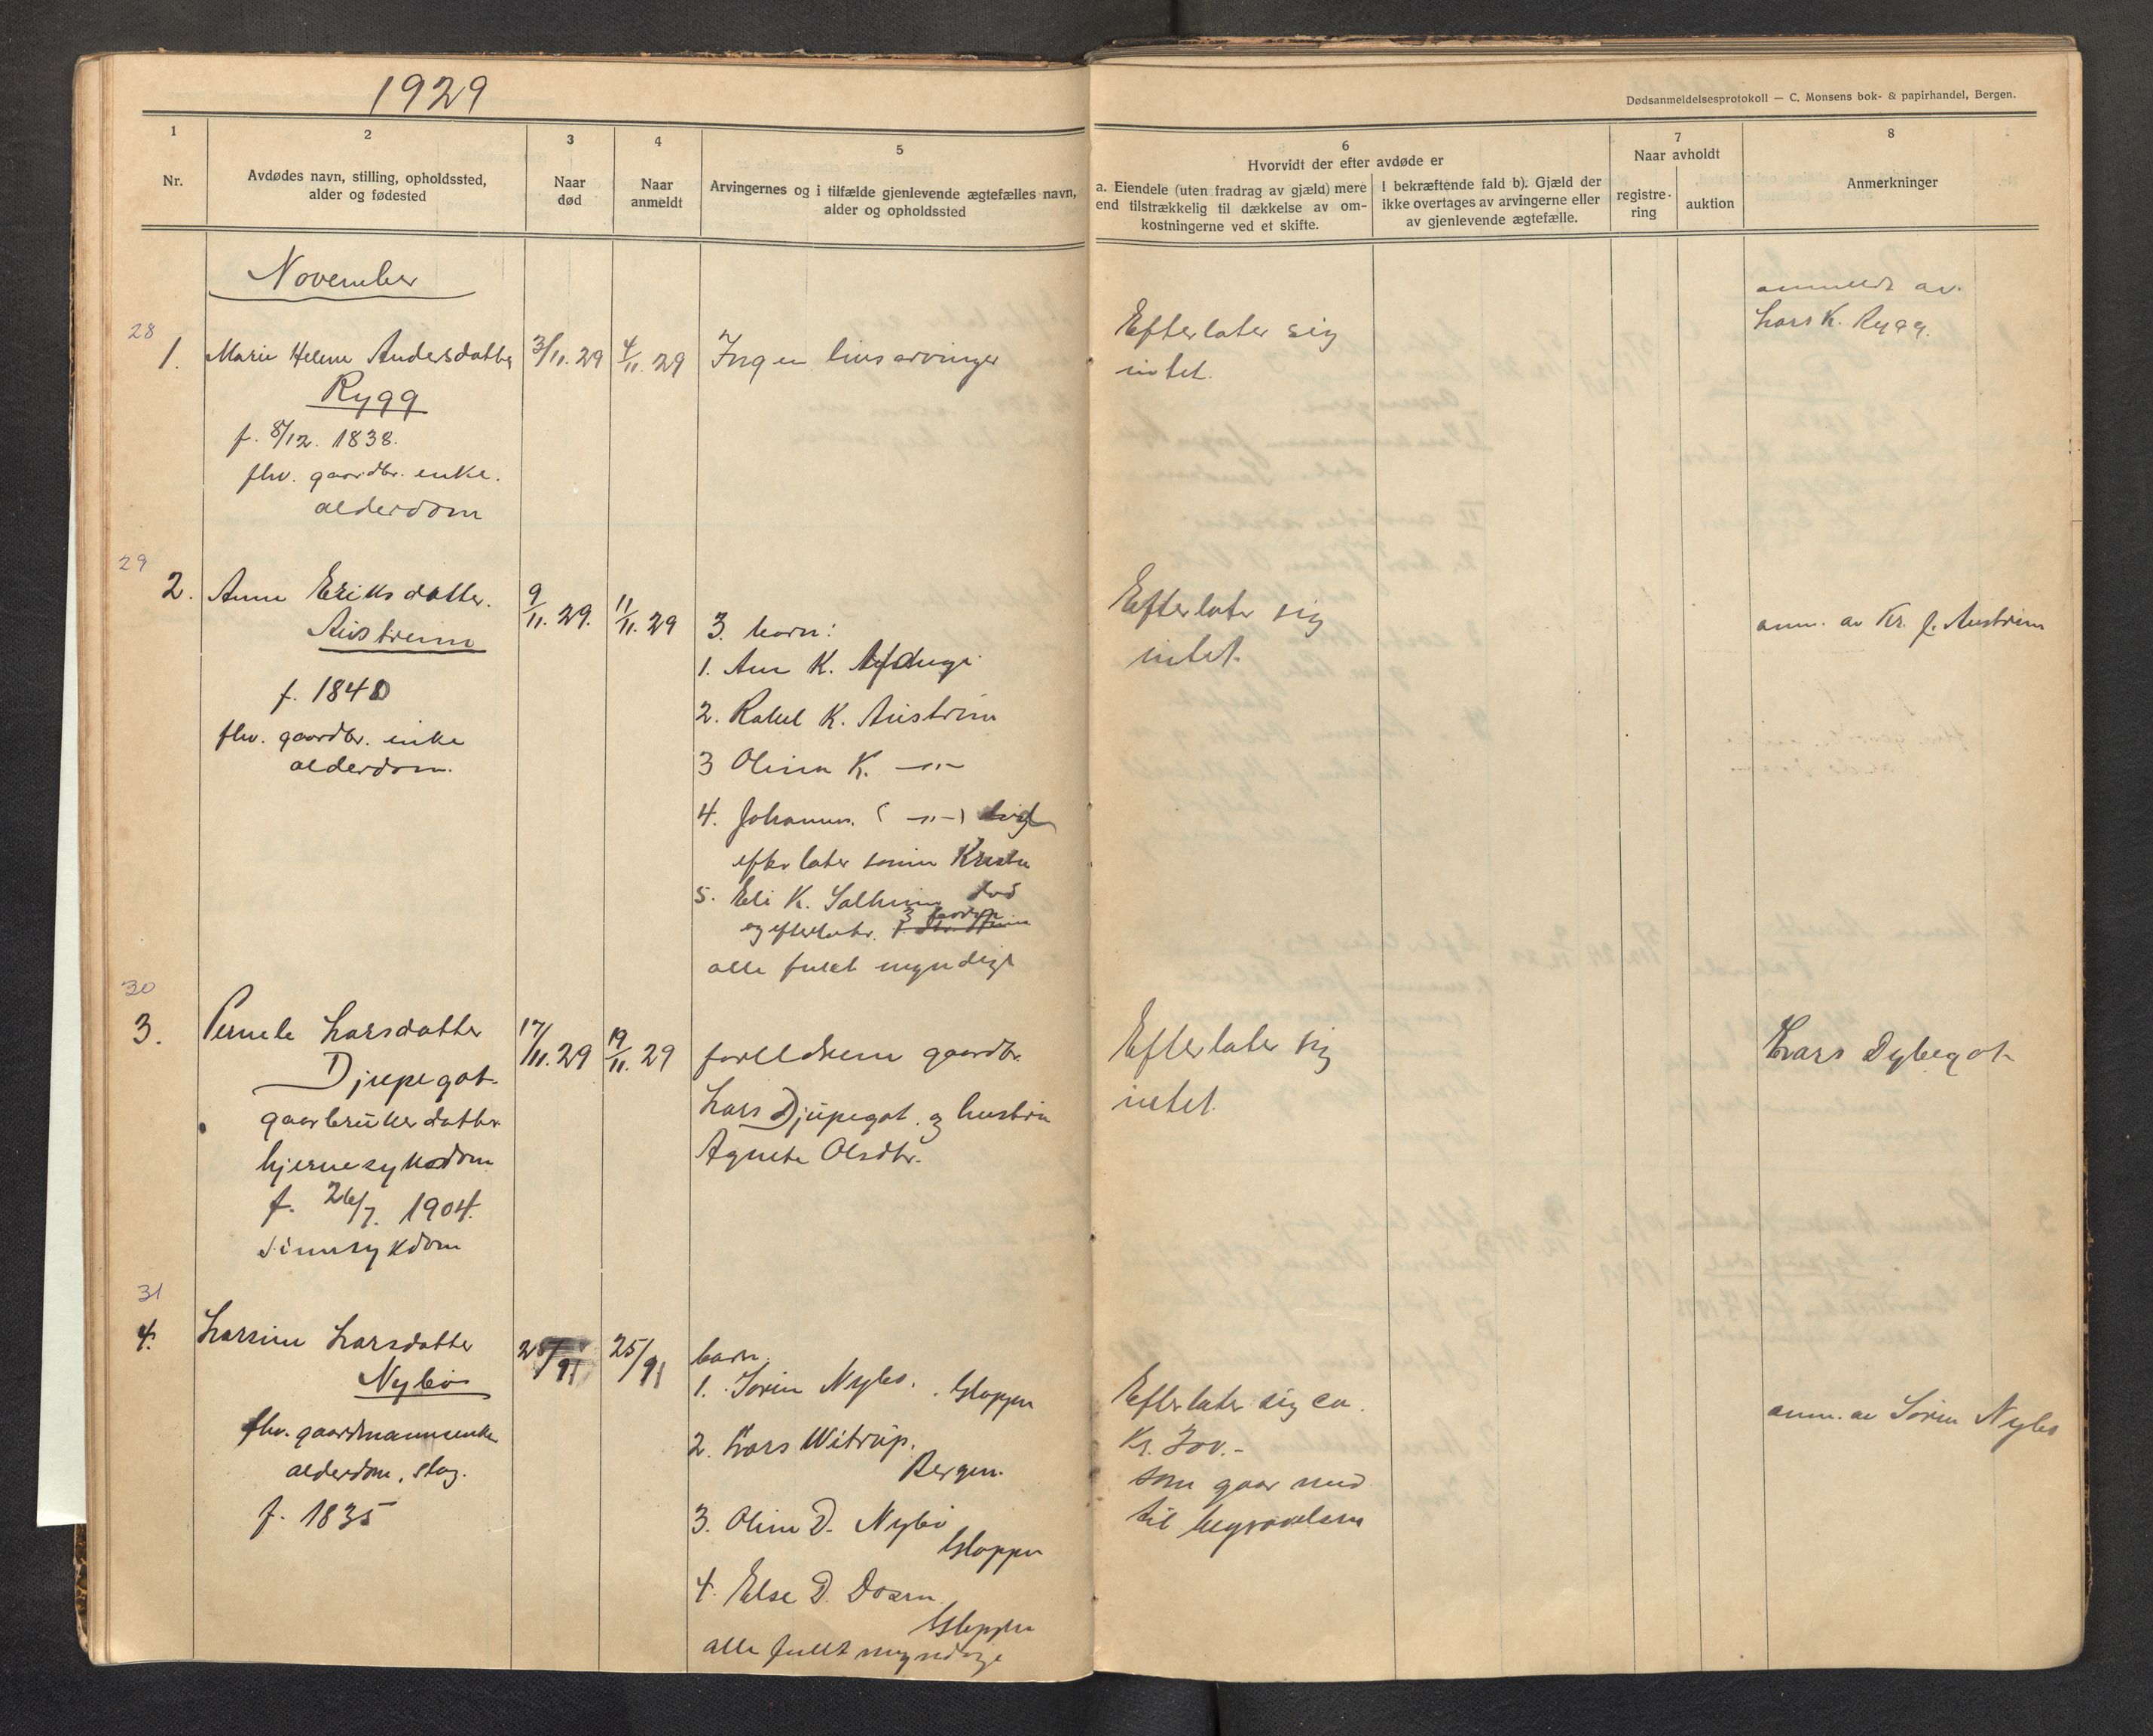 1929
Dødsanmeldelsesprotokoll — C. Monsens bok- & papirhandel, Bergen.
1
2
3
4
5
6
7
8
Nr.
Avdødes navn, stilling, opholdssted,
alder og fødested
Naar
død
Naar
anmeldt
Arvingernes og i tilfælde gjenlevende ægtefælles navn,
alder og opholdssted
Hvorvidt der efter avdøde er
a. Eiendele (uten fradrag av gjæld) mere
end tilstrækkelig til dækkelse av om-
kostningerne ved et skifte.
I bekræftende fald b). Gjæld der
ikke overtages av arvingerne eller
av gjenlevende ægtefælle.
Naar avholdt
registre-
ring
auktion
Anmerkninger
November
28
1. Marie Helene Andersdatter
Rygg
f. 8/12. 1838.
fhv. gaardbr. enke.
alderdom
3/11. 29
4/11. 29
Ingen livsarvinger
Efterlater sig
intet.
anmeldt av
Lars K. Rygg.
29
2. Anne Eriksdatter.
Austreim
f. 1840
fhv. gaardbr. enke
alderdom.
9/11. 29.
11/11. 29
3. barn:
1. Ane K.
2. Rakel K. Austreim
3 Oline K. —"—
4. Johannes ( —"— )
efterlater sønn
5. Eli K. Solheim død
og efterlater. 3
alle fuldt myndige
Efterlater sig
intet.
anm. av Kr. J. Austreim
30
3. Pernele Larsdatter
Djupegot.
gaarbruker datter
hjernesykdom
f. 26/7. 1904.
Sinnsykdom
17/11. 29
19/11. 29
forelldrene gaardbr.
Lars Djupegot. og hustru
Agnete Olsdtr.
Efterlater sig
intet.
Lars Dybegot
31
4. Larsine Larsdatter
Nybø
fhv. gaardmannsenke
alderdom, slag.
f. 1835
25/11
barn.
1. Søren Nybø. Gloppen
2. Lars Witrup.
Bergen.
3. Oline D. Nybø
Gloppen
4. Else D.
Gloppen
alle fullt myndige
Efterlater sig ca.
Kr.
som gaar med
til begravelsen
anm. av Søren Nybø